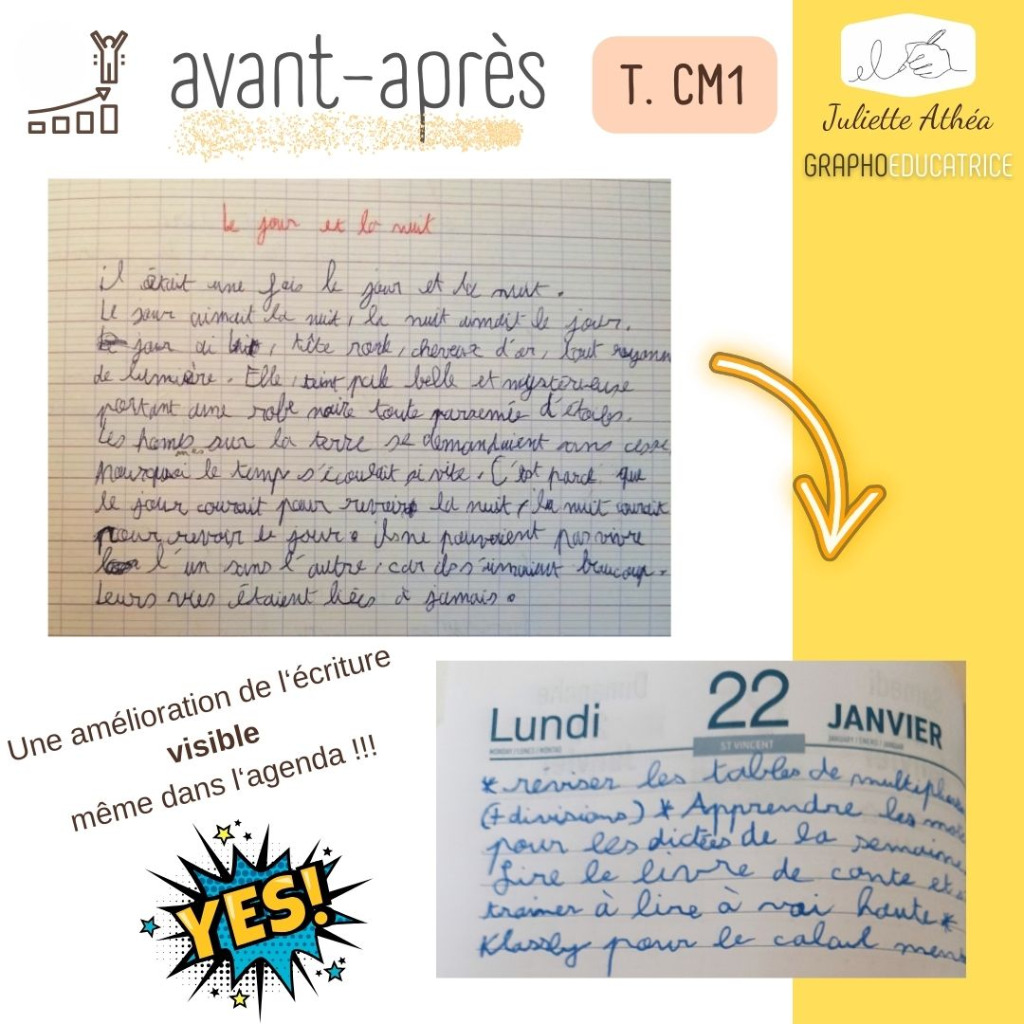 avant-après
T. CM1
Juliette Athéa
GRAPHOEDUCATRICE
Le jour et la nuit
il était une fois le jour et la nuit.
Le jour aimait la nuit, la nuit aimait le jour.
jour ai, tête, cheveux d'or, tout
de lumière. Elle, teint pale belle et mystérieuse
portant une robe noire toute parsemée d'étoiles.
Les homes sur la terre se demandaient sans cesse
mes
pourquoi le temp s'écoulait si vite. C'est parce que
le jour courait pour revoir la nuit, la nuit courait
pour revoir le jour. ils ne pouvaient pas vivre
l'un sans l'autre, car ils s'aimaient beaucoup.
Leurs vies étaient liées à jamais.
Une amélioration de l'écriture
visible
même dans l'agenda !!!
YES!
Lundi 22 JANVIER
MONDAY / LUNES / MONTAG
ST VINCENT
JANUARY / ENERO / JANUAR
* réviser les tables de
(+ divisions) * Apprendre les
pour les dictées de la semaine
Lire le livre de conte et
trainer à lire à voi haute *
Klassly pour le calcul men